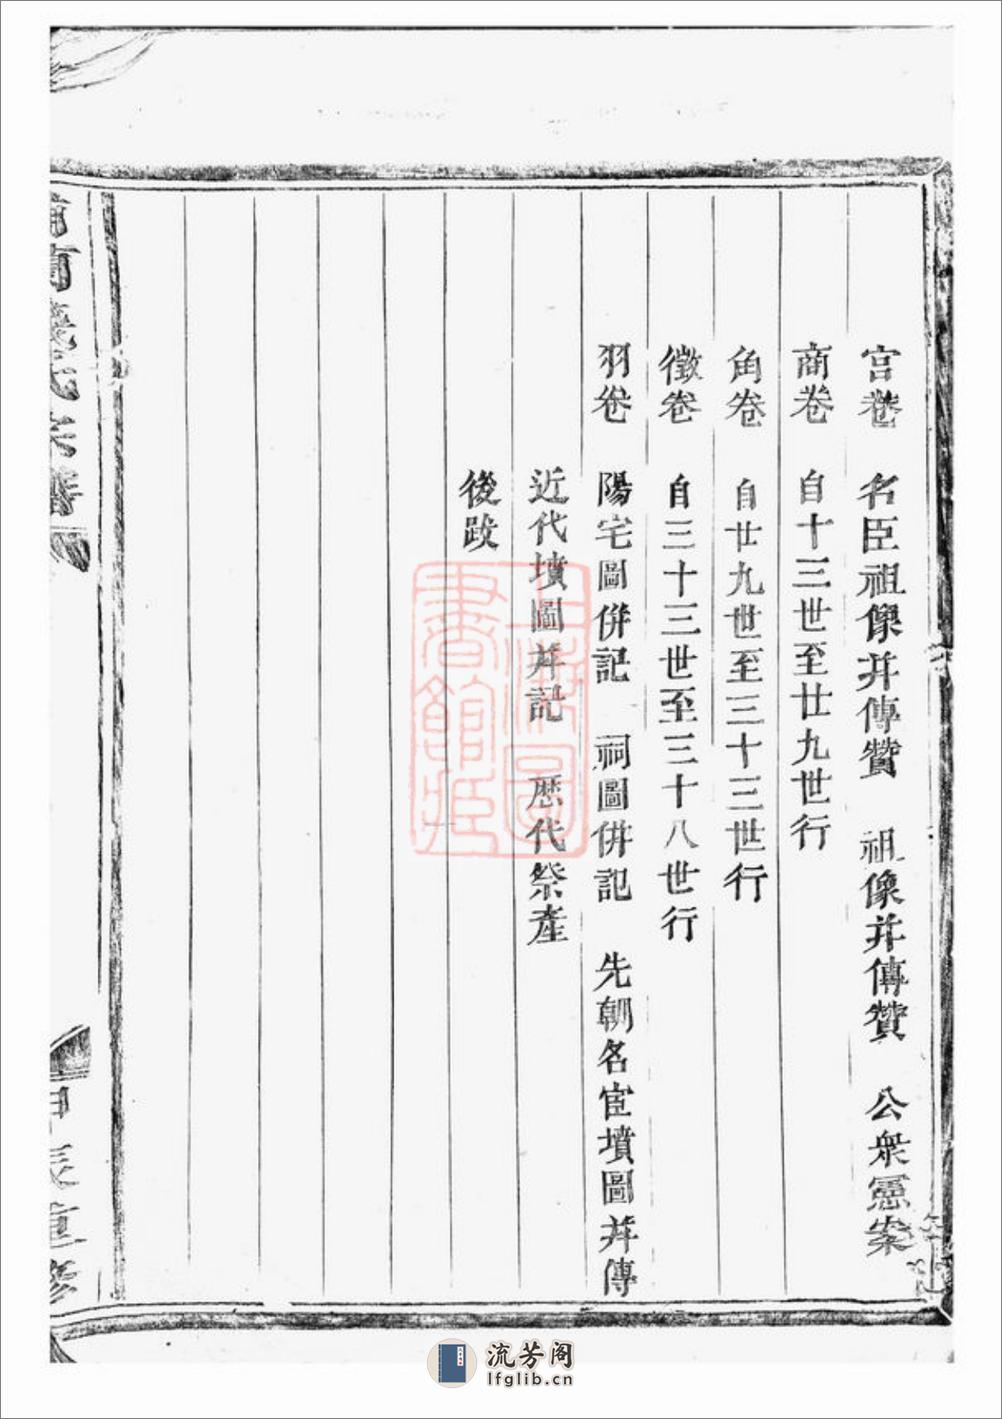 宫卷 名臣祖像并傳贊 祖像并傳贊 公衆憲案
商卷 自十三世至廿九世行
角卷 自廿九世至三十三世行
徵卷 自三十三世至三十八世行
羽卷 陽宅圖併記 祠圖併記 先朝名宦墳圖并傳
近代墳圖并記 歷代祭產
後跋
氏宗譜
甲辰重修
上海圖書館藏
流芳阁
lfglib.cn